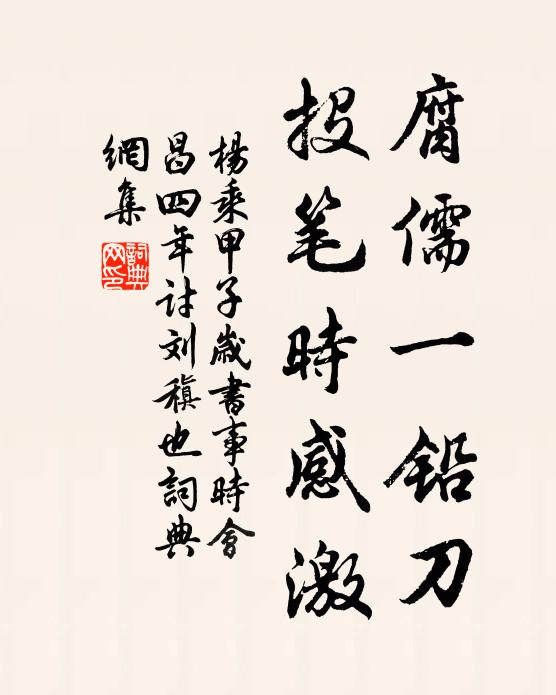 腐儒一铅刀
投笔時感激
楊乘甲子歲書事時會
昌四年討刘稹也詞典
網集
詞典网印